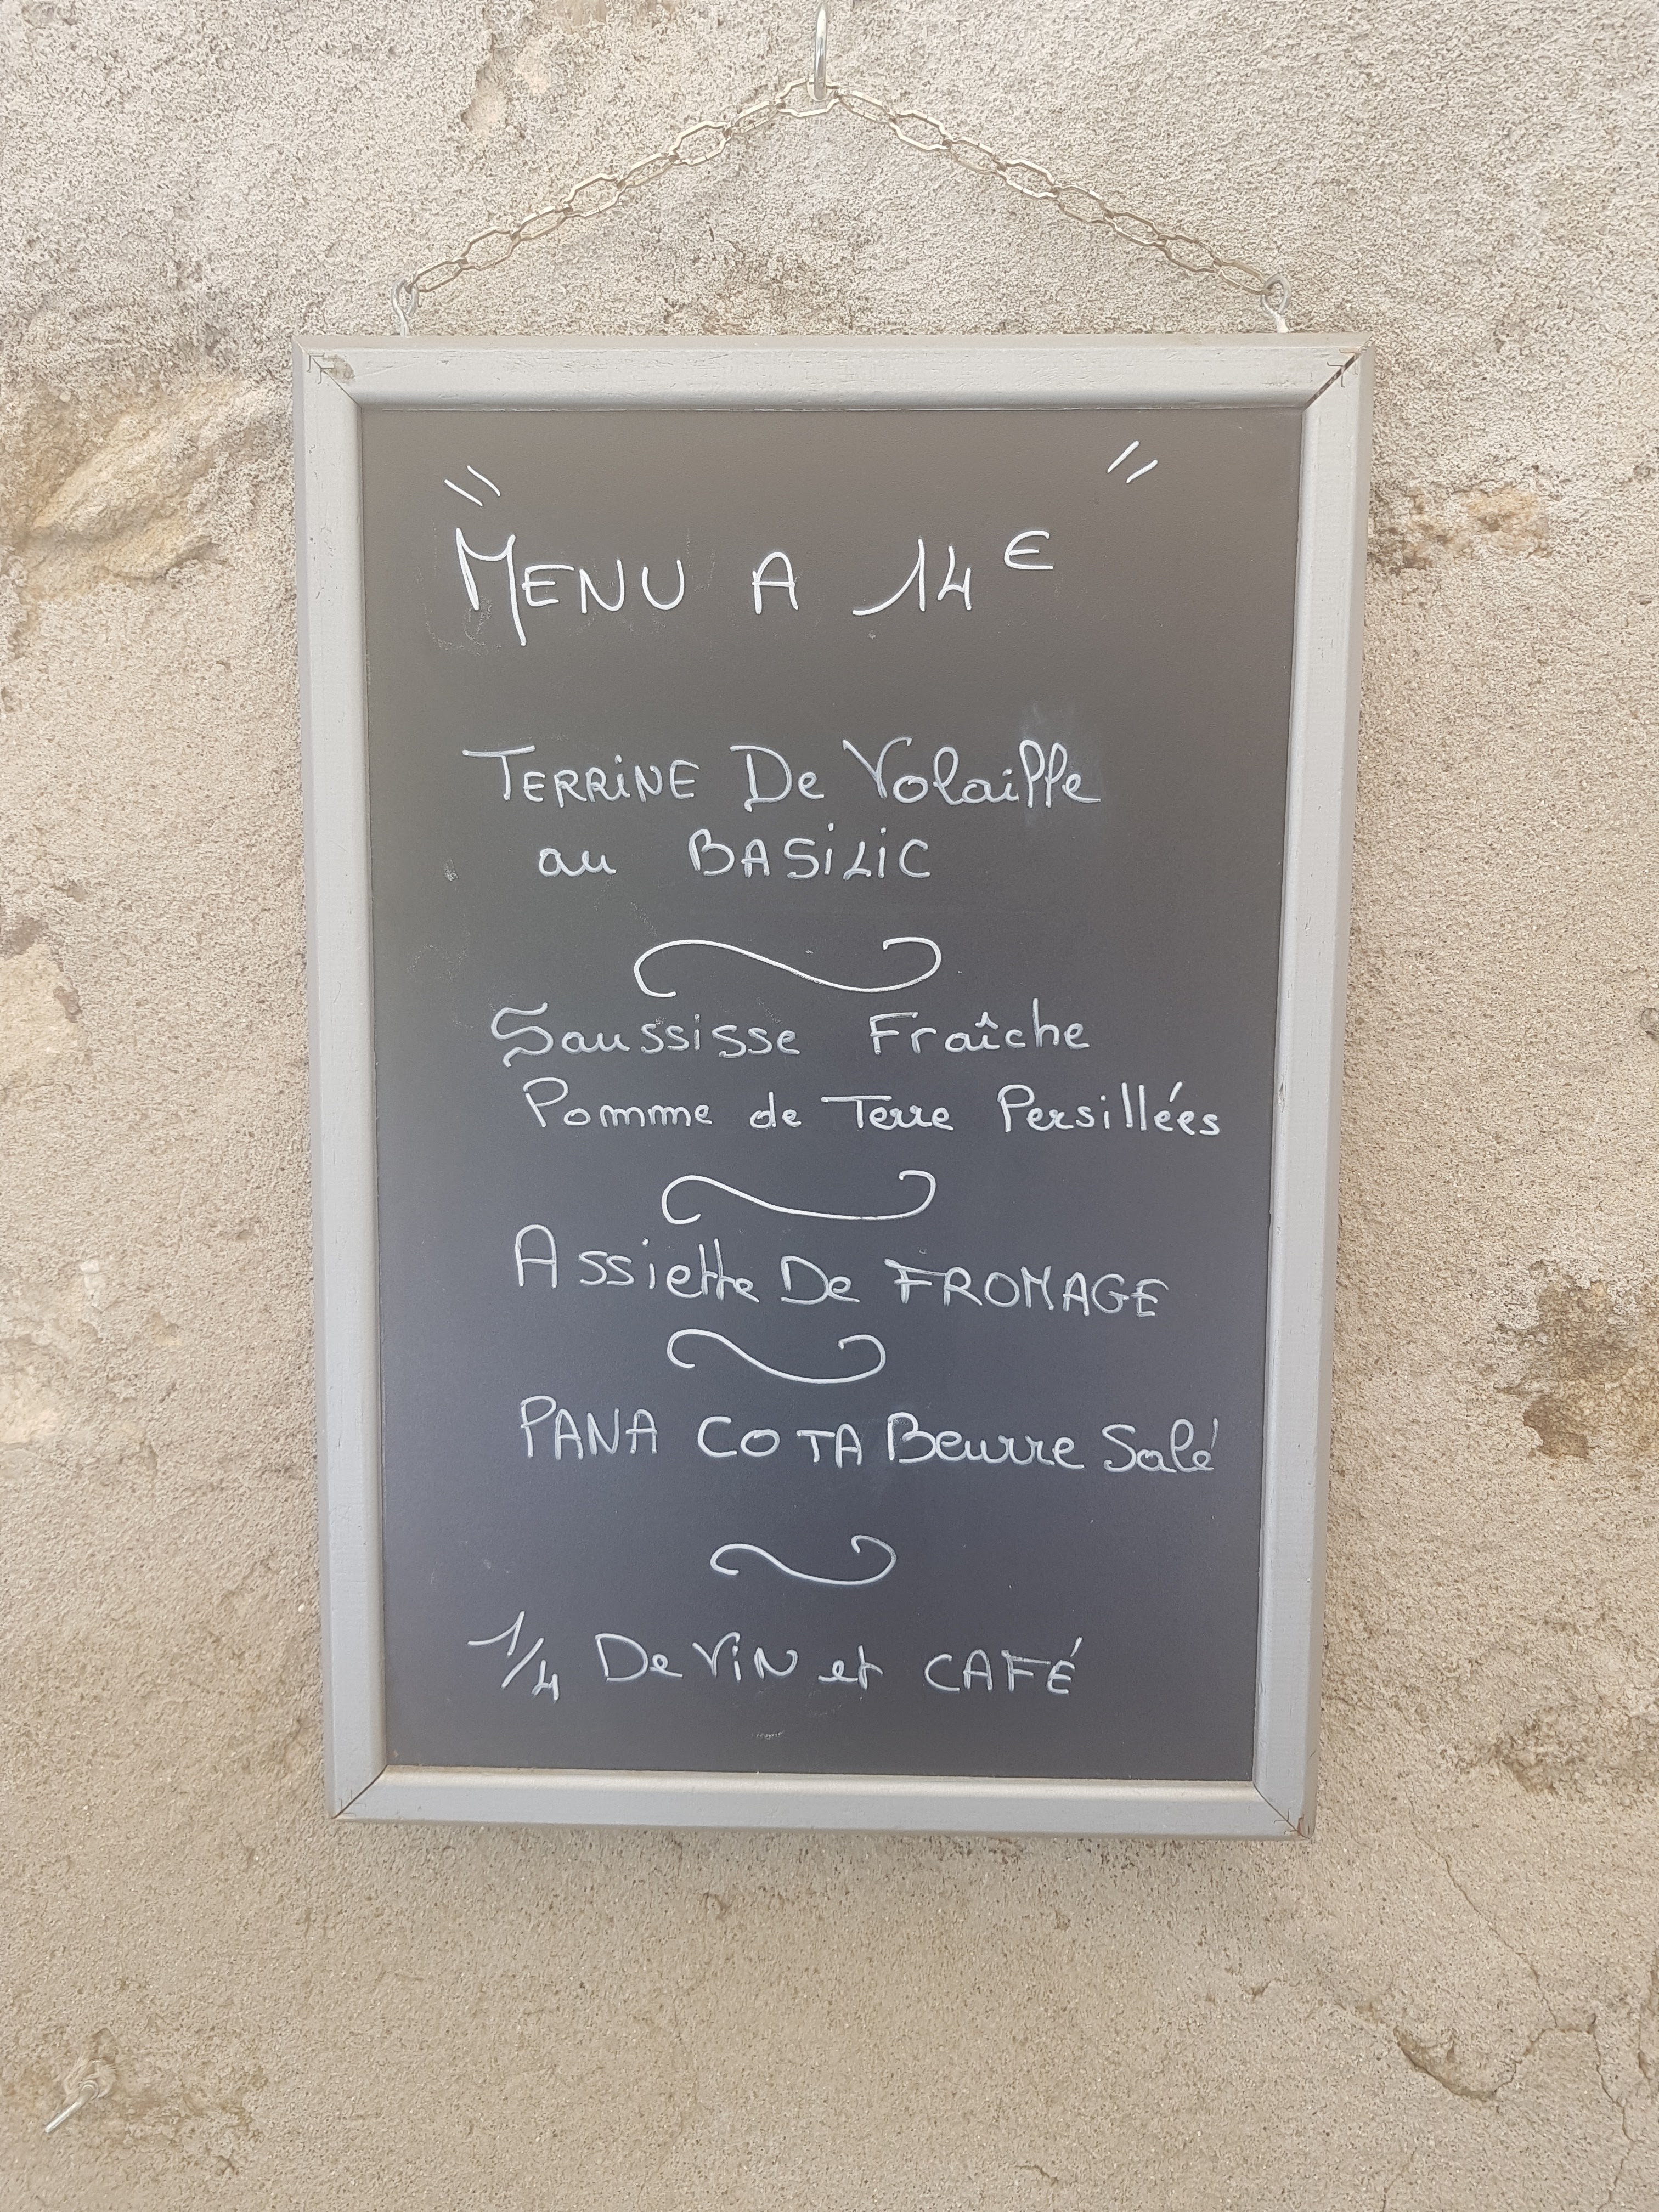 " "
MENU A 14€
TERRINE De Volaille
au BASILIC
Saussisse Fraîche
Pomme de Terre Persillées
Assiette De FROMAGE
PANA COTA Beurre Salé
1/4 De ViN et CAFÉ